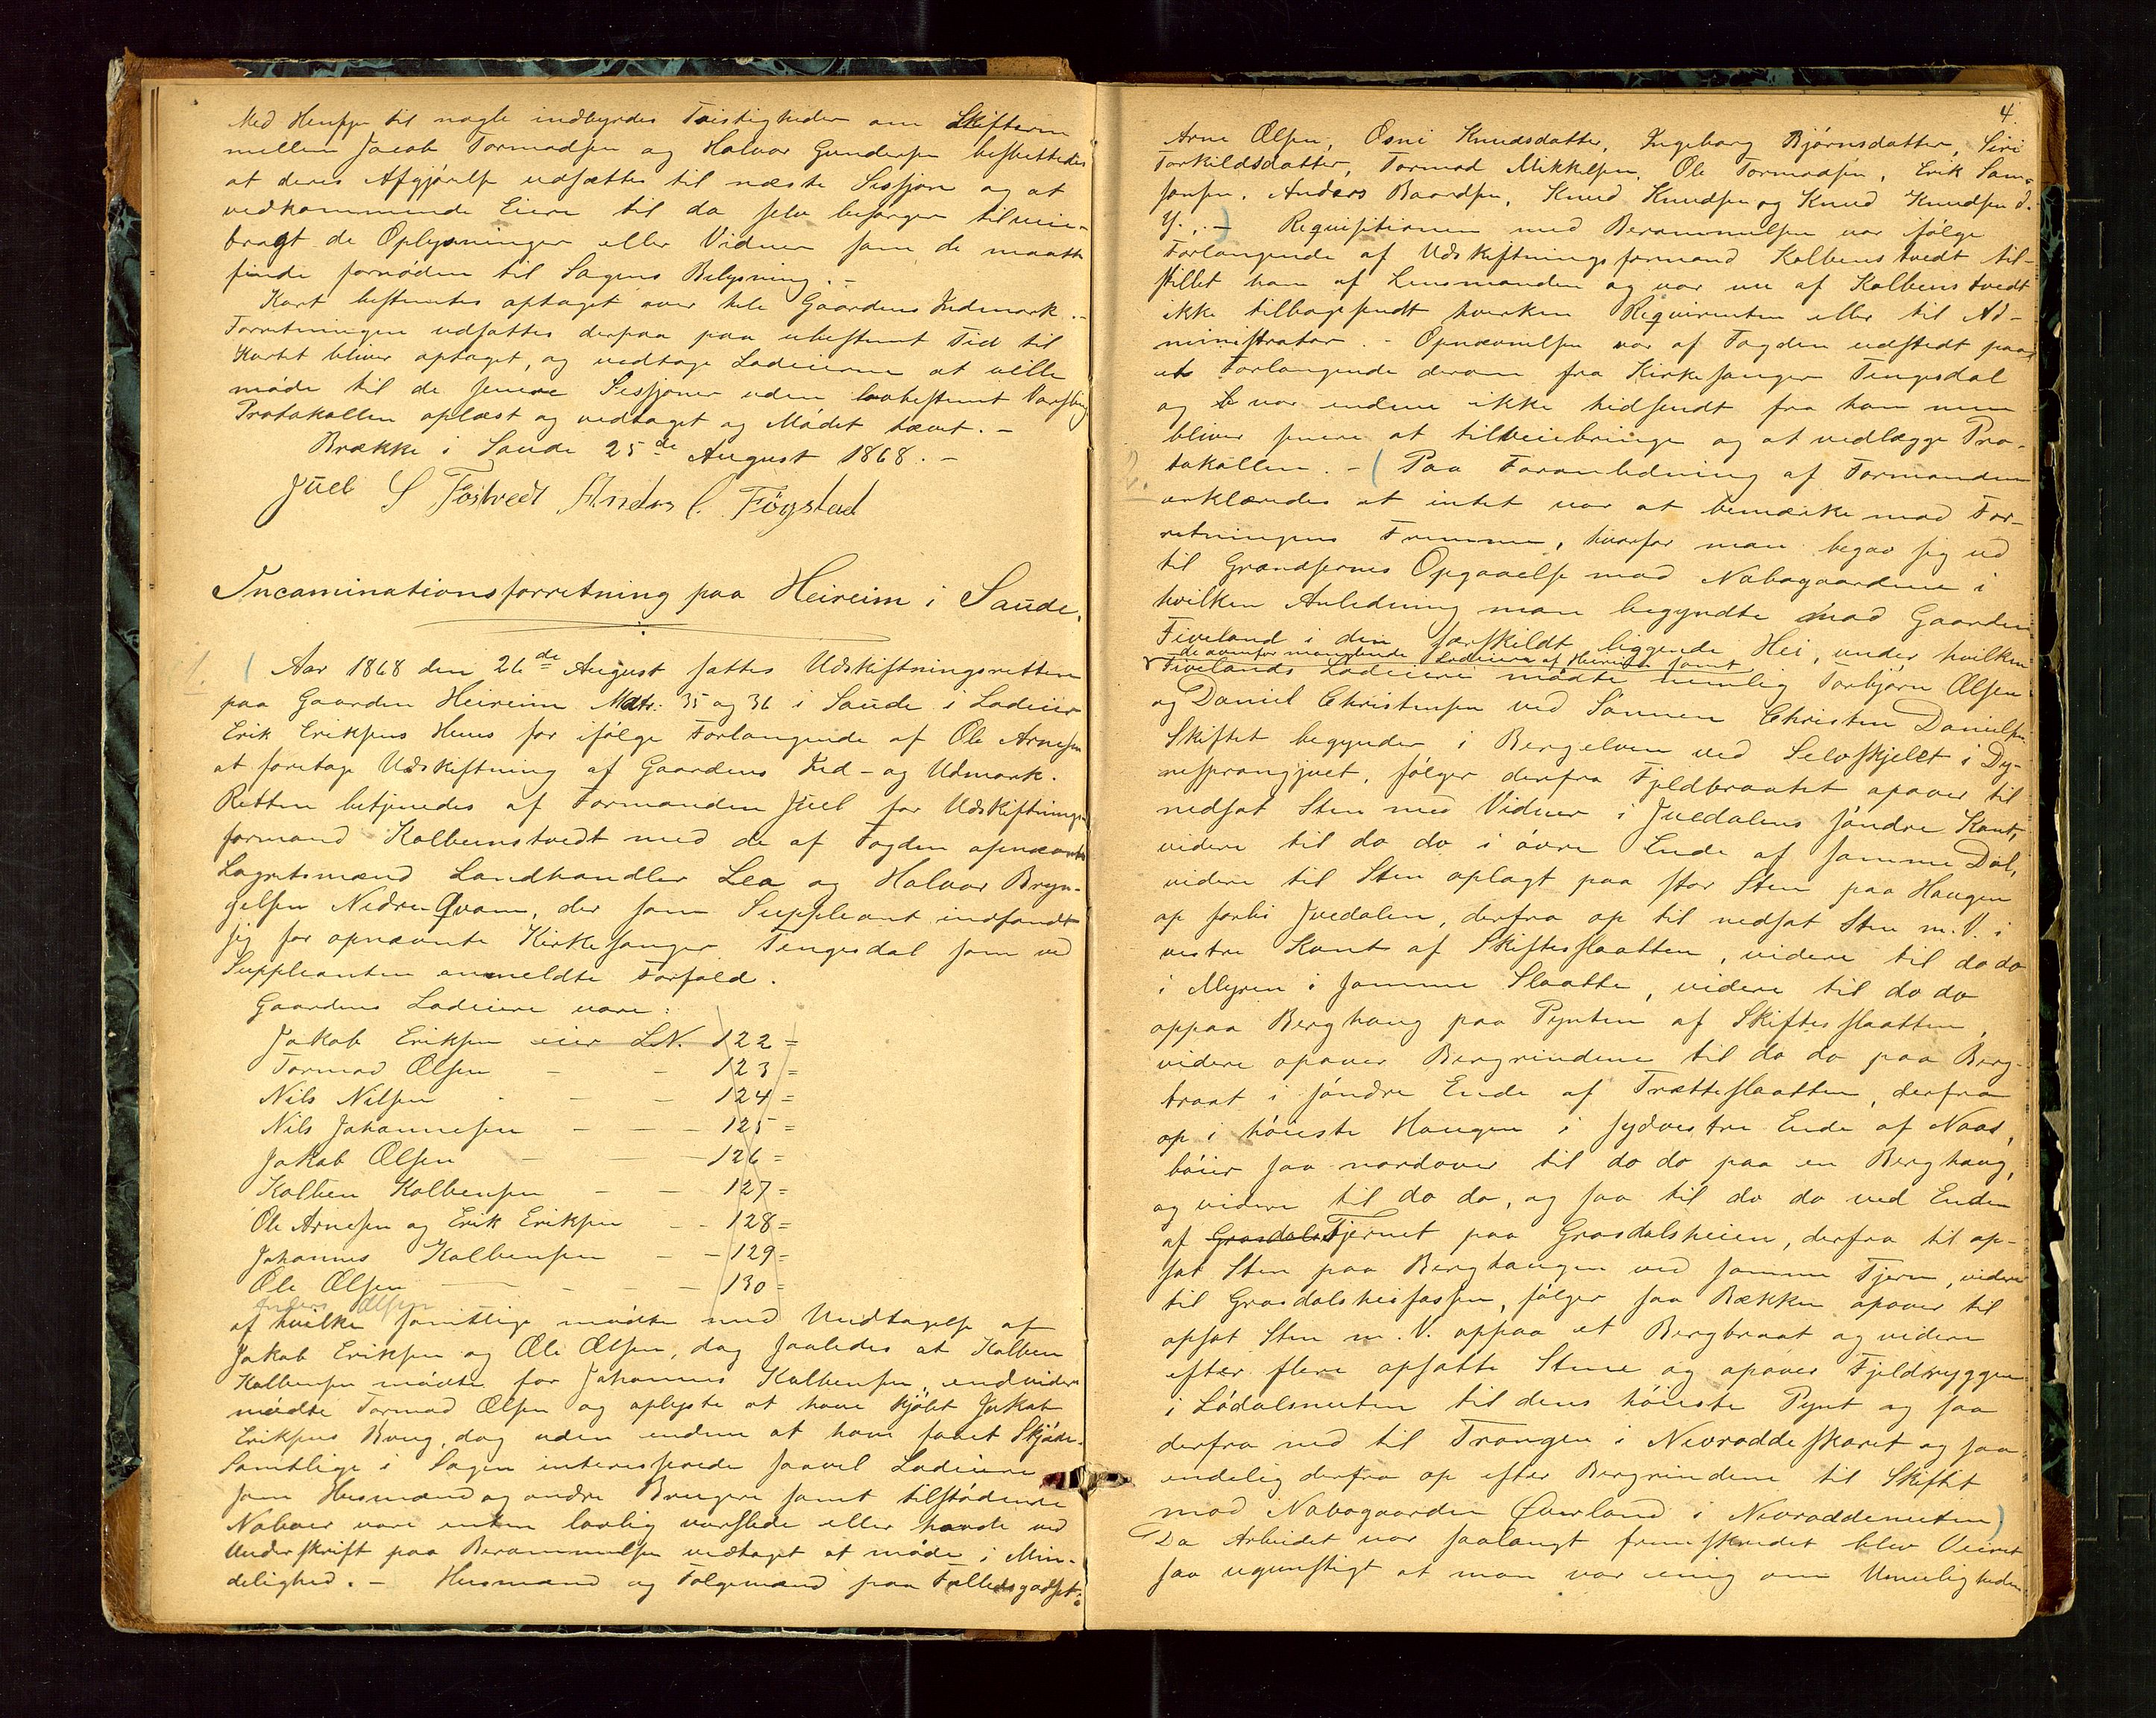 Med Hensyn til nogle indbyrdes Tvistigheder om Skifterne
mellem Jacob Tormodsen og Halvor Gundersen besluttedes
at deres Afgjørelse udsættes til næste Sessjon og at
vedkommende Eiere til da selv besørger tilveie-
bragt de Oplysninger eller Vidner som de maatte
finde fornøden til Sagens Belysning. -
Kart bestemtes optaget over hele Gaardens Indmark. -
Forretningen udsattes derpaa paa ubestemt Tid til
Kartet bliver optaget, og vedtoge Lodeierne at ville
møde til de senere Sessjoner uden lovbestemt Varsling
Protokollen oplæst og vedtaget og Mødet hævet. -
Brække i Saude 25de August 1868. -
Juel S Fostvedt Anders C. Føgstad
Incaminationsforretning paa Heireim i Saude.
1. ( Aar 1868 den 26de August sattes Udskiftningsretten
paa Gaarden Heireim Matr: 35 og 36 i Saude i Lodeier
Erik Eriksens Huus for ifølge Forlangende af Ole Arnesen
at foretage Udskiftning af Gaardens Ind- og Udmark.
Retten betjenedes af Formanden Juel for Udskiftnings-
formand Kolbenstvedt med de af Fogden opnævnte
Lagretsmænd Landhandler Lea og Halvor Bryn-
gelsen Nedre Qvam, der som Suppleant indfandt
sig for opnævnte Kirkesanger Tengesdal som ved
Suppleanten anmeldte Forfald.
Gaardens Lodeiere vare:
Jakob Eriksen eier LN. 122 =
Tormod Olsen - - 123 =
Nils Nilsen - - - 124 =
Nils Johannesen - - - 125 =
Jakob Olsen - - - 126 =
Kolben Kolbensen - - 127 =
Ole Arnesen og Erik Eriksen - - 128 =
Johannes Kolbensen - - 129 =
Ole Olsen - - - 130 =
Anders Olsen
af hvilke samtlige mødte med Undtagelse af
Jakob Eriksen og Ole Olsen, dog saaledes at Kolben
Kolbensen mødte for Johannes Kolbensen, endvidere
mødte Tormod Olsen og oplyste at have kjøbt Jakob
Eriksens Brug, dog uden endnu at have faaet Skjøde.
Samtlige i Sagen interesserede saavel Lodeiere
som Husmænd og andre Brugere samt tilstødende
Naboer vare enten lovlig varslede eller havde ved
Underskrift paa Berammelsen vedtaget at møde i Min-
delighed. - Husmænd og Følgemænd paa Fælledsgodset:
4.
Arne Olsen, Osni Knudsdatter, Ingeborg Bjørnsdatter, Siri
Torkildsdatter, Tormod Mikkelsen, Ole Tormodsen, Erik Sam-
sonsen, Anders Baardsen, Knud Knudsen og Knud Knudsen d.
y. - ) Requisitionen med Berammelsen var ifølge
Forlangende af Udskiftningsformand Kolbenstvedt til-
stillet ham af Lensmanden og var nu af Kolbenstvedt
ikke tilbagesendt hverken Requirenten eller til Ad-
ministrator. - Opnævnelsen var af Fogden udstedt paa
et Forlangende derom fra Kirkesanger Tengesdal
og var endnu ikke hidsendt fra ham men
bliver senere at tilveiebringe og at vedlægge Pro-
tokollen. - ( Paa Foranledning af Formanden
2. erklæredes at intet var at bemærke mod For-
retningens Fremme, hvorfor man begav sig ud
til Grændsernes Opgaaelse mod Nabogaardene i
hvilken Anledning man begyndte mod Gaarden
Fiveland i den særskildt liggende Hei, under hvilken
de ovenfor manglende Lodeiere af Heireim samt
Fivelands Lodeiere mødte nemlig Torbjørn Olsen
og Daniel Christensen ved Sønnen Christen Danielsen
Skiftet begynder i Bergelven ved Selvskjelet i Dy-
nesprangjuet, følger derfra Fjeldbraatet opover til
nedsat Sten med Vidner i Juvdalens søndre Kant,
videre til do do i øvre Ende af samme Dal,
videre til Sten oplagt paa stor Sten paa Haugen
op forbi Juvdalen, derfra op til nedsat Sten m. V. i
vestre Kant af Skiftesslaatten, videre til do do
i Myren i samme Slaatte, videre til do do
oppaa Berghaug paa Pynten af Skiftesslaatten,
videre opover Bergrindene til do do paa Berg-
braat i søndre Ende af Trætteslaatten, derfra
op i høieste Haugen i sydvestre Ende af Naas,
bøier saa nordover til do do paa en Berghaug,
og videre til do do, og saa til do do ved Enden
af Grasdals Tjernet paa Grasdalsheien, derfra til op-
sat Sten paa Berghaugen ved samme Tjern, videre
til Grasdalshesfossen, følger saa Bækken opover til
opsat Sten m. V. oppaa et Bergbraat og videre
efter flere opsatte Stene og opover Fjeldryggen
i Lødalsnuten til dens høieste Pynt og saa
derfra ned til Trangen i Nevroddeskaret og saa
endelig derfra op efter Bergrindene til Skiftet
mod Nabogaarden Øverland i Nevroddenuten )
Da Arbeidet var saalangt fremskredet blev Veiret
saa ugunstigt at man var enig om Umuligheden